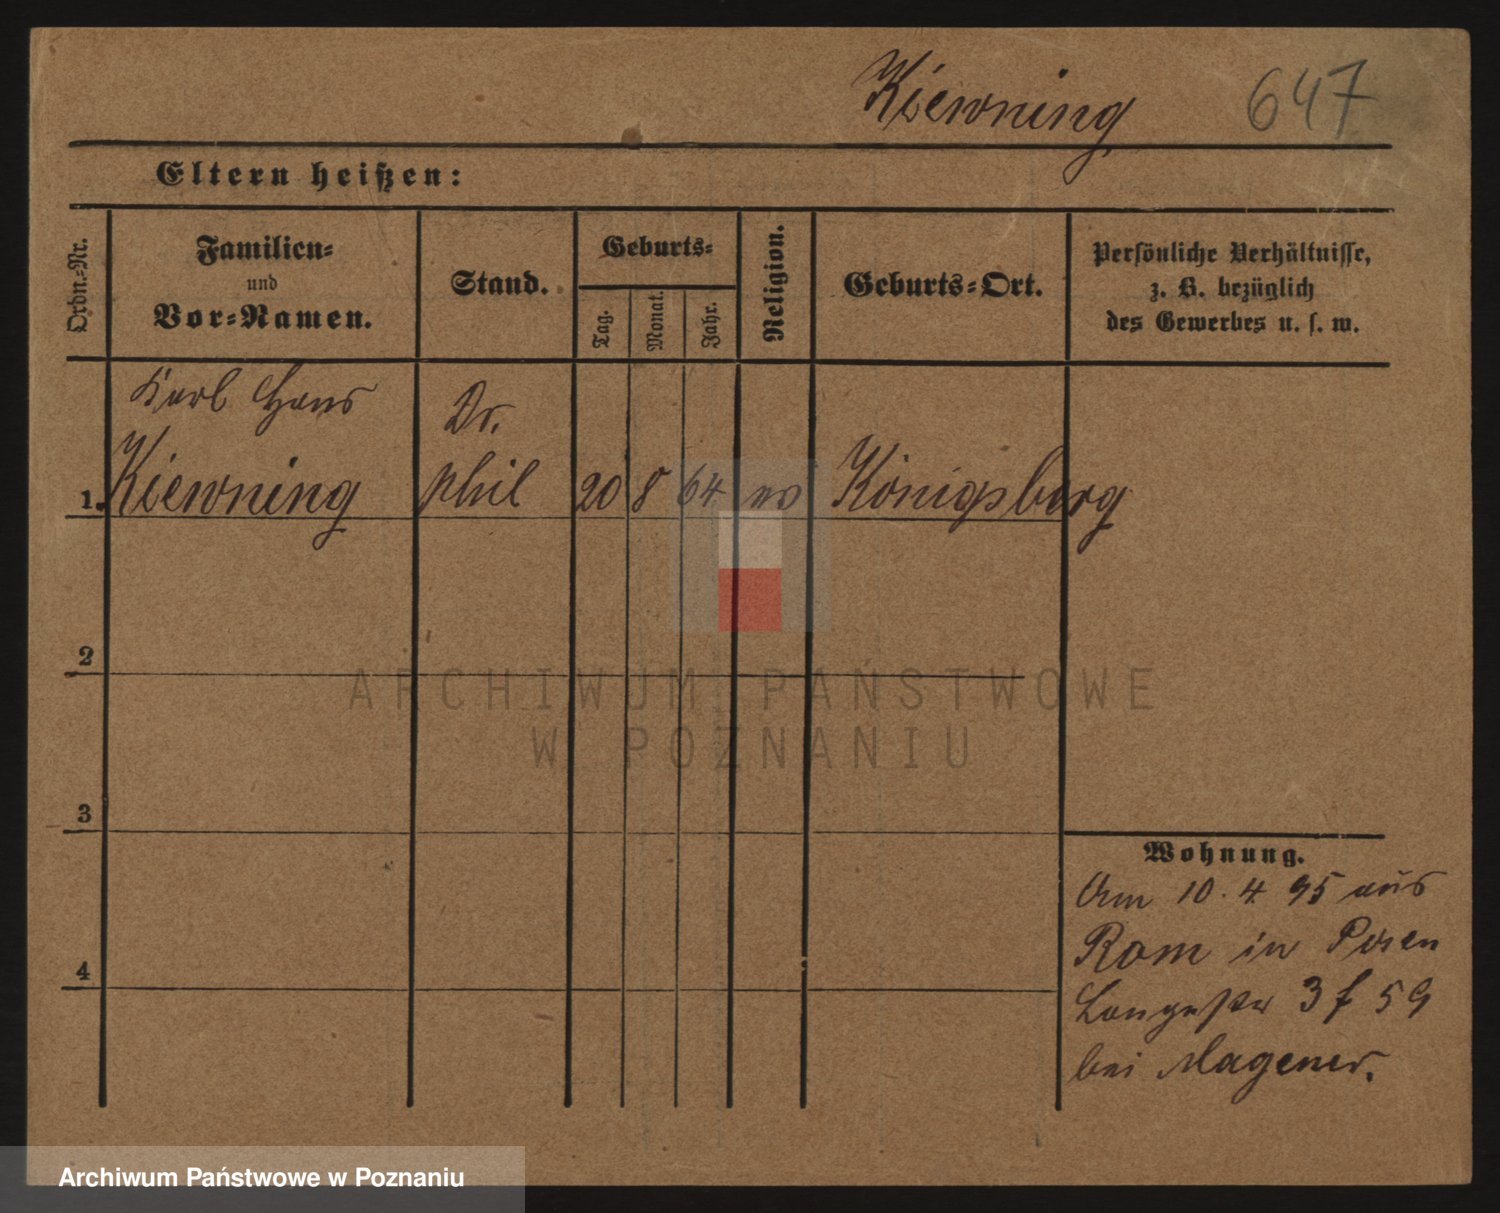 Kiewning 647
Eltern heißen:
Ordn.-Nr.
Familien-
und
Vor-Namen.
Stand.
Geburts-
Tag.
Monat.
Jahr.
Religion.
Geburts-Ort.
Persönliche Verhältnisse,
z. B. bezüglich
des Gewerbes u. s. w.
Karl Hans Dr.
1. Kiewning phil 20 8 64 ev Königsberg
2
3
4
Wohnung.
Am 10.4 95 aus
Rom in Posen
Langestr 3 f 59
bei Magener.
ARCHIWUM PAŃSTWOWE
W POZNANIU
Archiwum Państwowe w Poznaniu